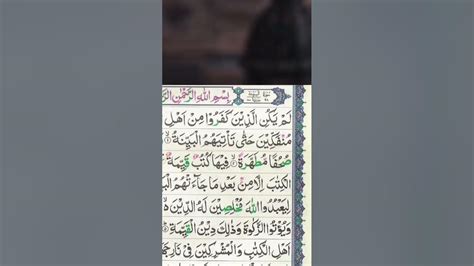 بِسْمِ اللهِ الرَّحْمٰنِ الرَّ
لَمْ يَكُنِ الَّذِيْنَ كَفَرُوْا مِنْ اَهْلِ
مُنْفَكِّيْنَ حَتّٰى تَاْتِيَهُمُ الْبَيِّنَةُ ۙ
صُحُفًا مُّطَهَّرَةً ۙ فِيْهَا كُتُبٌ قَيِّمَةٌ ؕ
الْكِتٰبَ اِلَّا مِنْۢ بَعْدِ مَا جَآءَتْهُمُ الْبَ
لِيَعْبُدُوا اللهَ مُخْلِصِيْنَ لَهُ الدِّيْنَ ۙ
وَيُؤْتُوا الزَّكٰوةَ وَذٰلِكَ دِيْنُ الْقَيِّمَةِ ؕ
اَهْلِ الْكِتٰبِ وَالْمُشْرِكِيْنَ فِيْ نَارِ جَ